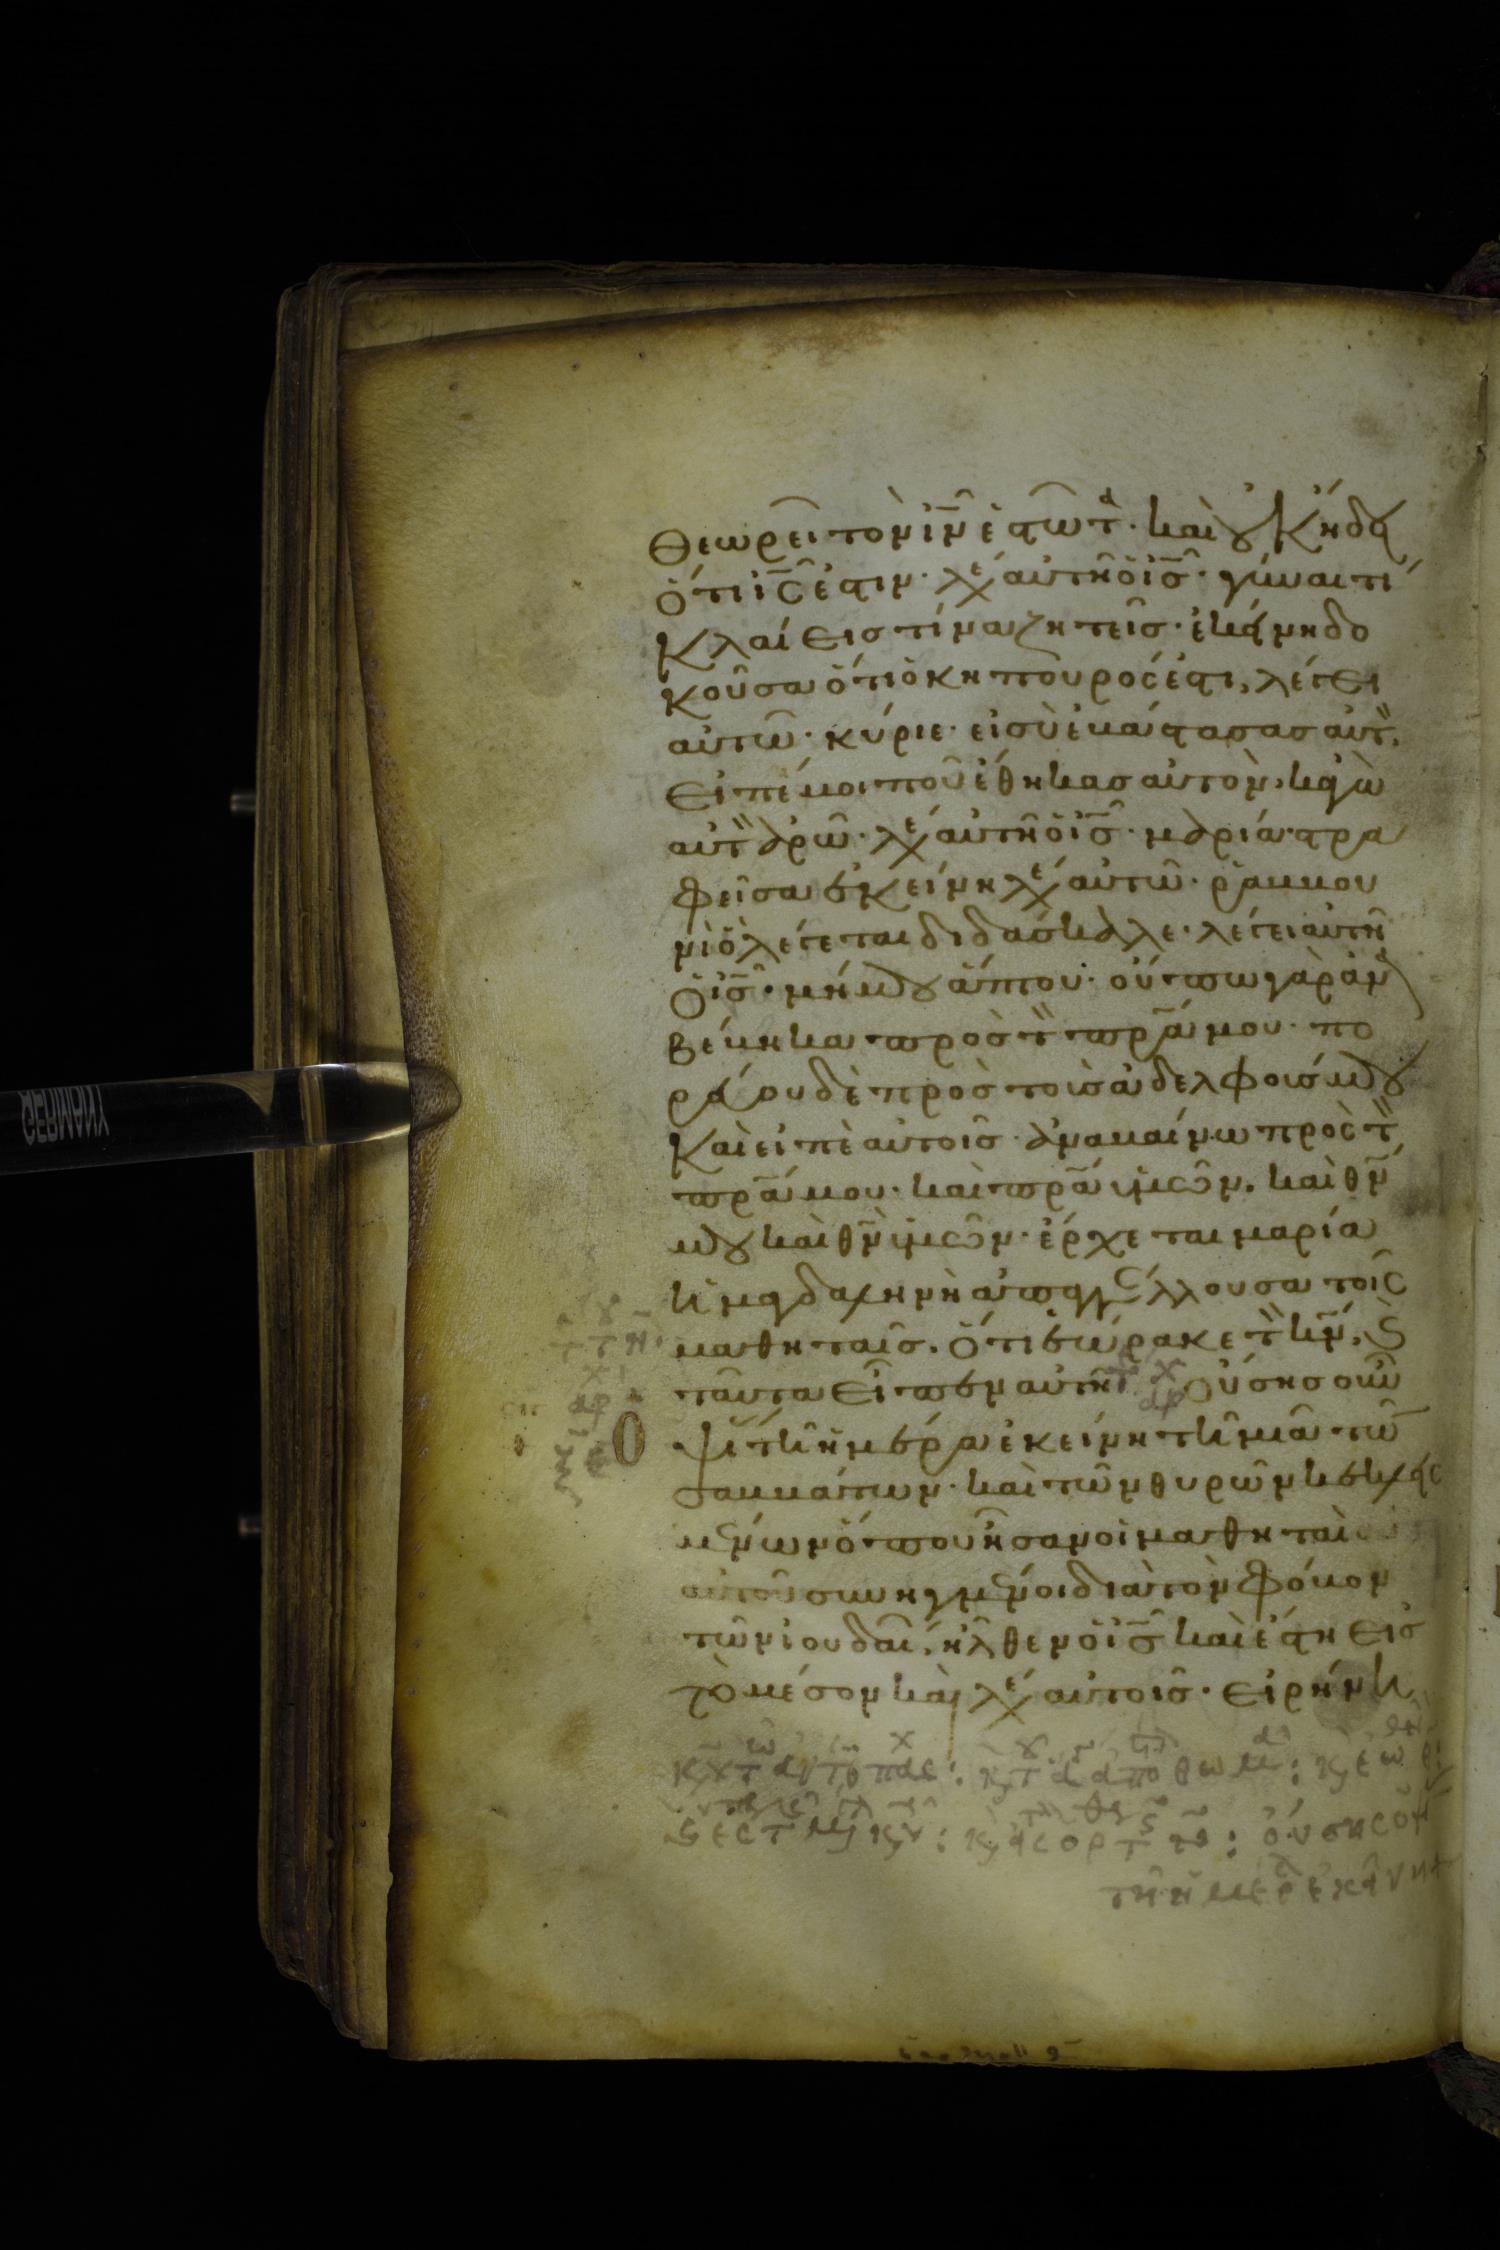 θεωρεῖ τὸν ἰν̅ ἑστῶτα· καὶ οὐκ ἤδει
ὅτι ἰς̅ ἐστιν· λέγει αὐτῆ ὁ ἰς̅· γύναι τί
κλαίεις τίνα ζητεῖς· ἐκείνη δο
κοῦσα ὅτι ὁ κηπουρός ἐστι, λέγει
αὐτῶ· κύριε· εἰ σὺ ἐβάστασας αὐτὸν,
εἰπέ μοι ποῦ ἔθηκας αὐτὸν, κἀγὼ
αὐτὸν ἀρῶ· λέγει αὐτῆ ὁ ἰς̅· μαρία· στρα
φεῖσα ἐκείνη λέγει αὐτῶ· ῥαββου
νὶ ὃ λέγεται διδάσκαλε· λέγει αὐτῆ
ὁ ἰς̅· μή μου ἅπτου· οὔπω γὰρ ἀνα
βέβηκα πρὸς τὸν πρ̅α μου· πο
ρεύου δὲ πρὸς τοὺς ἀδελφούς μου
καὶ εἰπὲ αὐτοῖς· ἀναβαίνω πρὸς τὸν
πρ̅α μου· καὶ πρ̅α ὑμῶν. καὶ θν̅
μου καὶ θν̅ ὑμῶν· ἔρχεται μαρία
ἡ μαγδαληνὴ ἀπαγγέλλουσα τοῖς
μαθηταῖς. ὅτι ἑώρακε τὸν κν̅, καὶ
ταῦτα εἶπεν αὐτῆ οὔσης οὖν
ὀψίας τῆ ἡμέρα ἐκείνη τῆ μιᾶ τῶν
σαββάτων· καὶ τῶν θυρῶν κεκλεισ
μένων ὅπου ἦσαν οἱ μαθηταὶ
αὐτοῦ συνηγμένοι διὰ τὸν φόβον
τῶν ἰουδαίων, ἦλθεν ὁ ἰς̅ καὶ ἔστη εἰς
τὸ μέσον καὶ λέγει αὐτοῖς· εἰρήνη